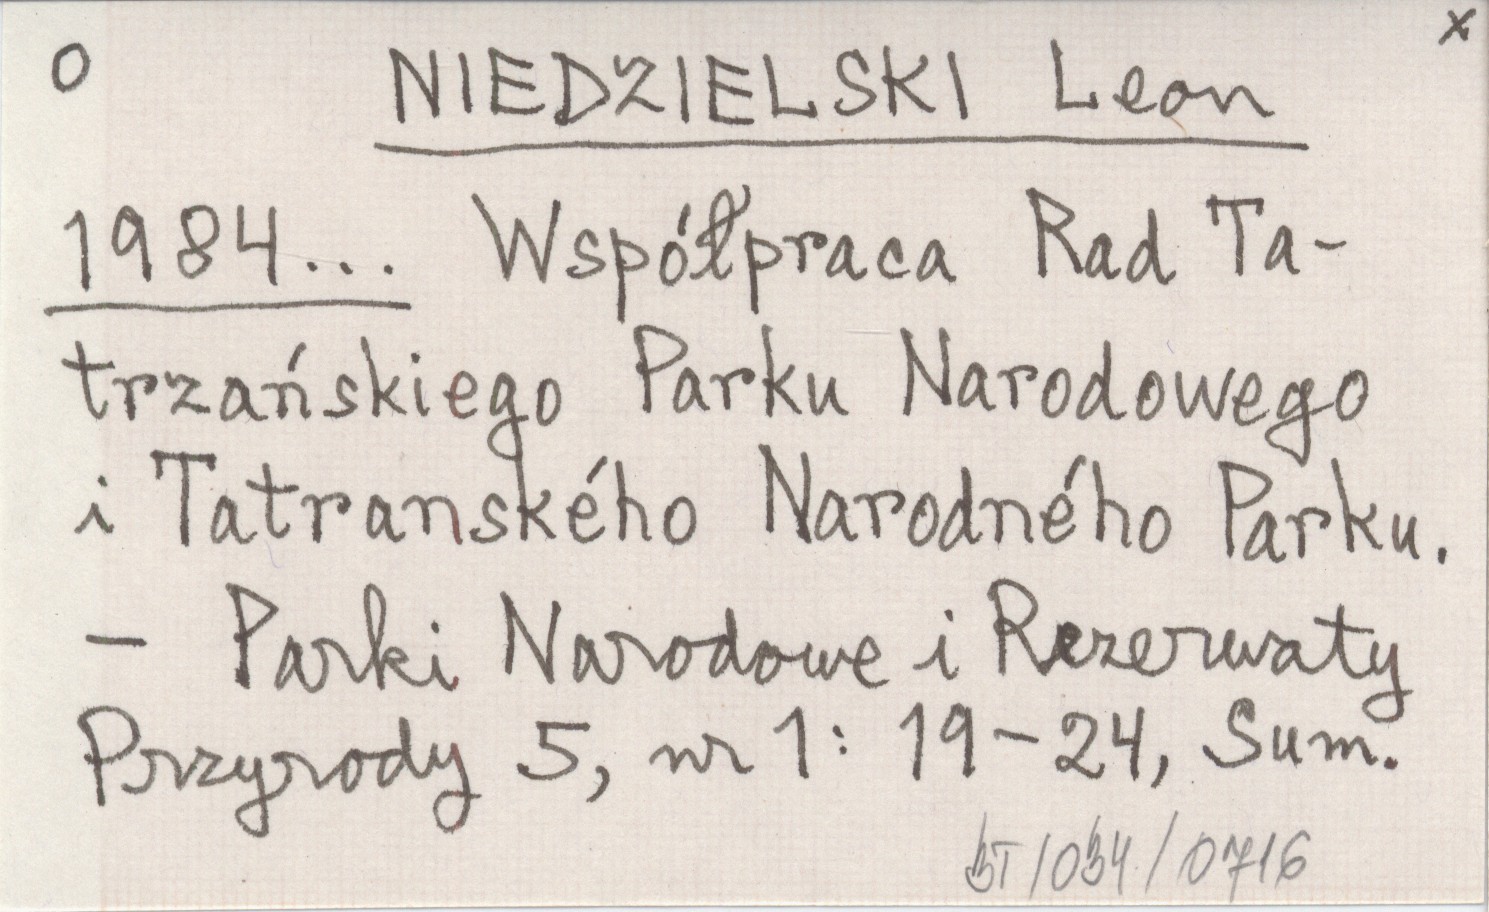 O NIEDZIELSKI Leon x
1984... Współpraca Rad Ta-
trzańskiego Parku Narodowego
i Tatranského Narodného Parku.
– Parki Narodowe i Rezerwaty
Przyrody 5, nr 1: 19–24, Sum.
BT/034/0716